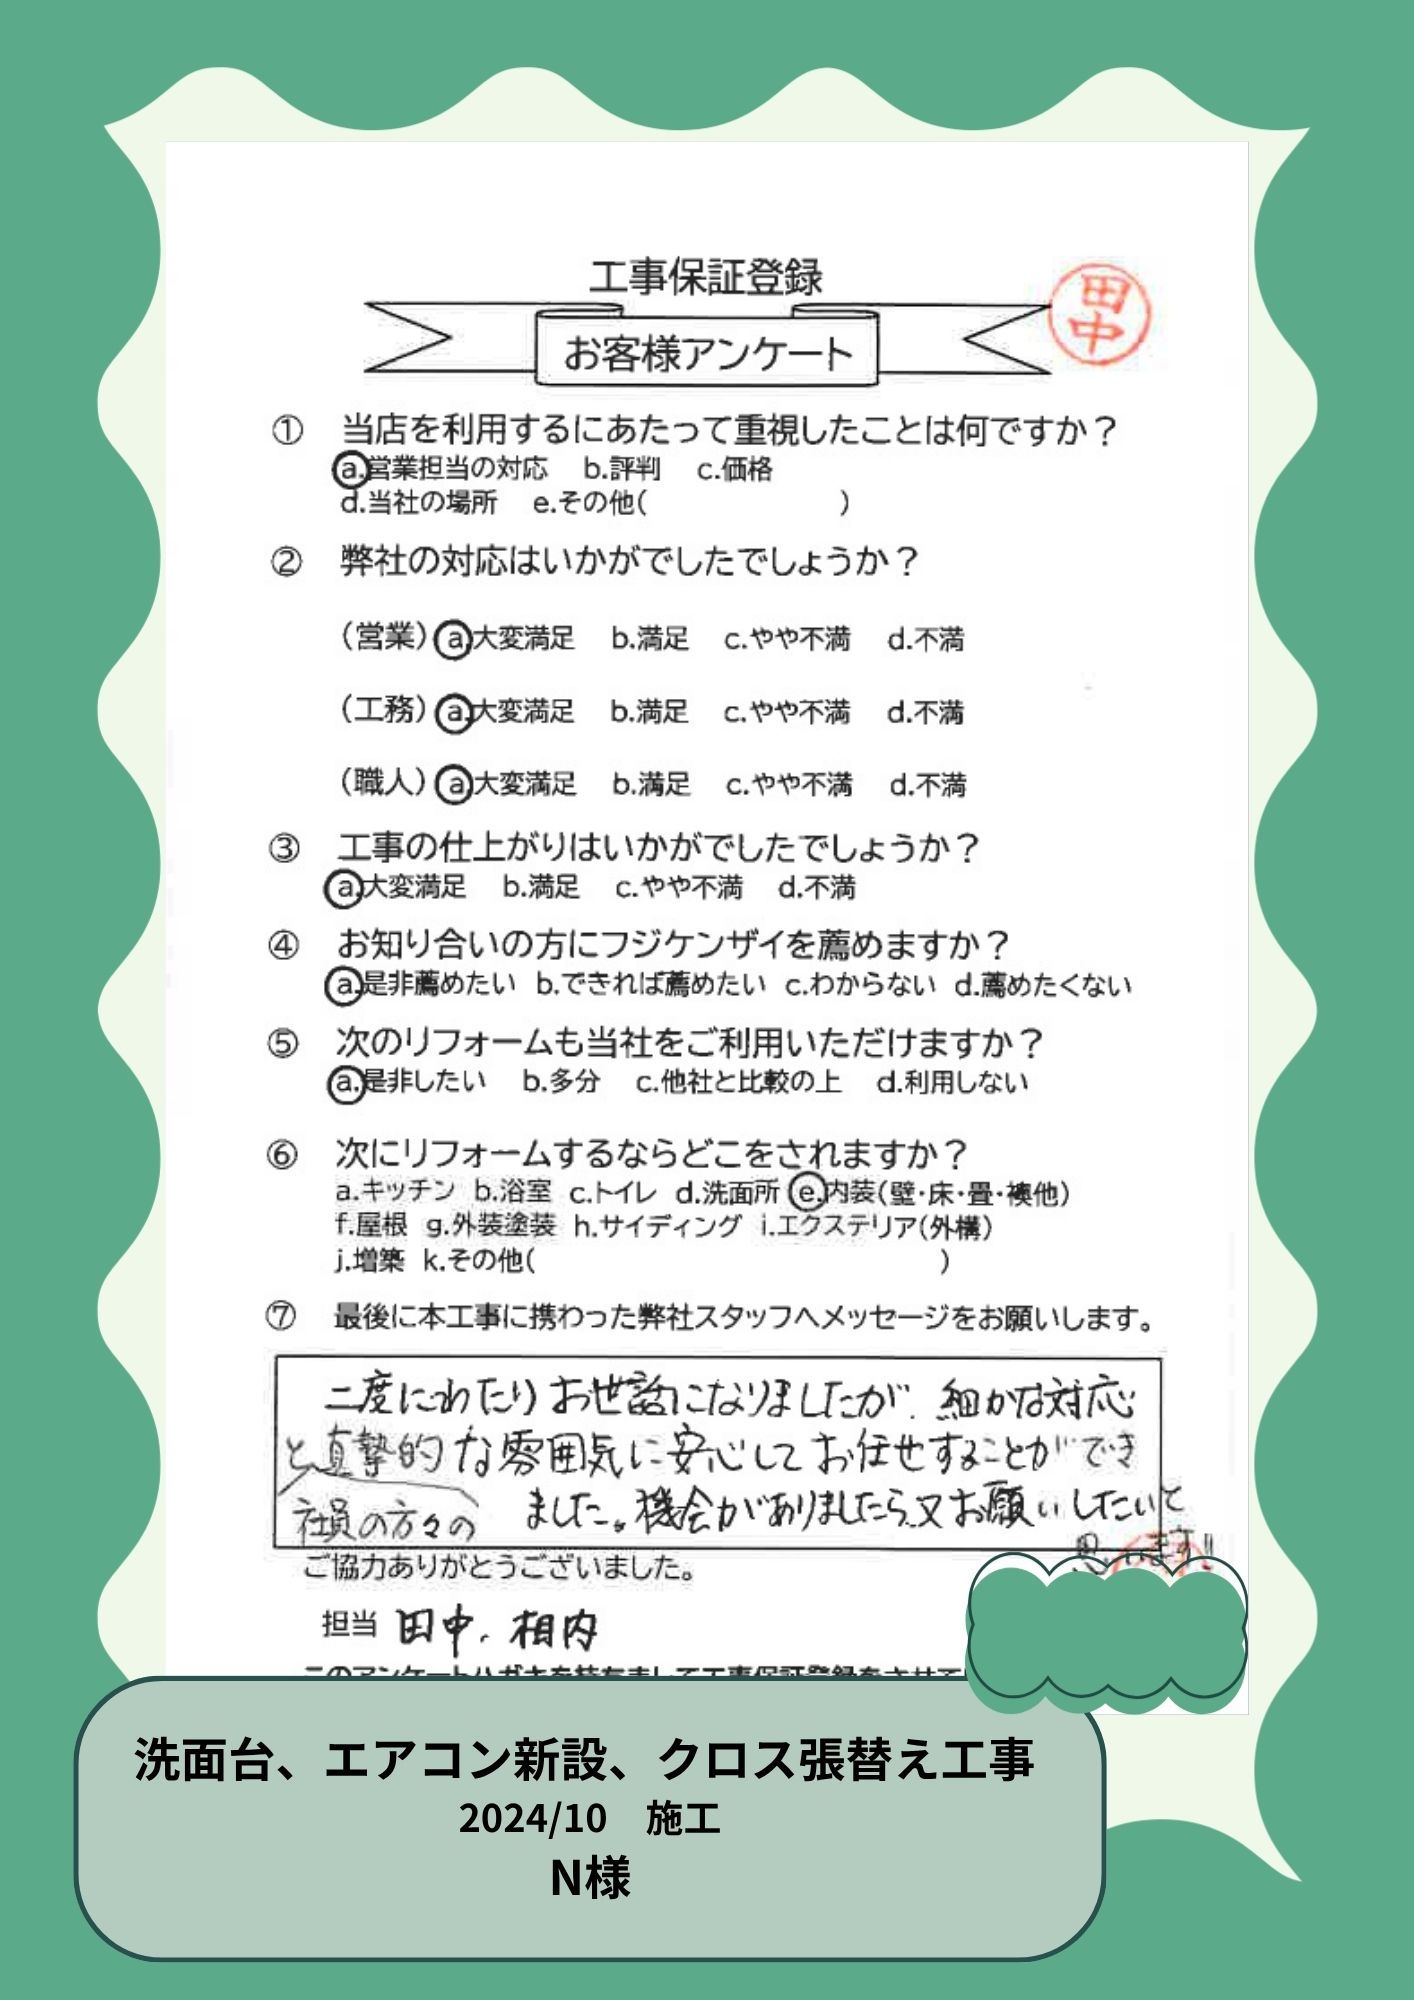 工事保証登録
田中
お客様アンケート
① 当店を利用するにあたって重視したことは何ですか？
a.営業担当の対応 b.評判 c.価格
d.当社の場所 e.その他( )
② 弊社の対応はいかがでしたでしょうか？
(営業) a.大変満足 b.満足 c.やや不満 d.不満
(工務) a.大変満足 b.満足 c.やや不満 d.不満
(職人) a.大変満足 b.満足 c.やや不満 d.不満
③ 工事の仕上がりはいかがでしたでしょうか？
a.大変満足 b.満足 c.やや不満 d.不満
④ お知り合いの方にフジケンザイを薦めますか？
a.是非薦めたい b.できれば薦めたい c.わからない d.薦めたくない
⑤ 次のリフォームも当社をご利用いただけますか？
a.是非したい b.多分 c.他社と比較の上 d.利用しない
⑥ 次にリフォームするならどこをされますか？
a.キッチン b.浴室 c.トイレ d.洗面所 e.内装(壁・床・畳・襖他)
f.屋根 g.外装塗装 h.サイディング i.エクステリア(外構)
j.増築 k.その他( )
⑦ 最後に本工事に携わった弊社スタッフへメッセージをお願いします。
二度にわたりお世話になりましたが、細かな対応
と真摯的な雰囲気に安心してお任せすることができ
社員の方々の ました。機会がありましたら、又お願いしたいと
思います!!
ご協力ありがとうございました。
担当 田中、相内
このアンケートハガキを持ちまして工事保証登録をさせて
洗面台、エアコン新設、クロス張替え工事
2024/10 施工
N様